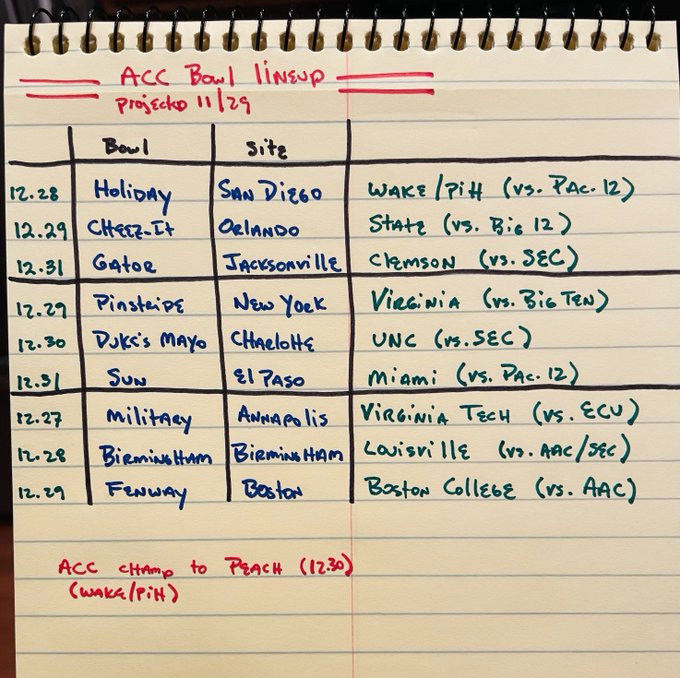 ACC Bowl lineup
projected 11/29
Bowl Site
12.28 Holiday San Diego Wake/Pitt (vs. Pac. 12)
12.29 Cheez-It Orlando State (vs. Big 12)
12.31 Gator Jacksonville Clemson (vs. SEC)
12.29 Pinstripe New York Virginia (vs. Big Ten)
12.30 Duke's Mayo Charlotte UNC (vs. SEC)
12.31 Sun El Paso Miami (vs. Pac. 12)
12.27 Military Annapolis Virginia Tech (vs. ECU)
12.28 Birmingham Birmingham Louisville (vs. AAC/SEC)
12.29 Fenway Boston Boston College (vs. AAC)
ACC champ to Peach (12.30)
(Wake/Pitt)